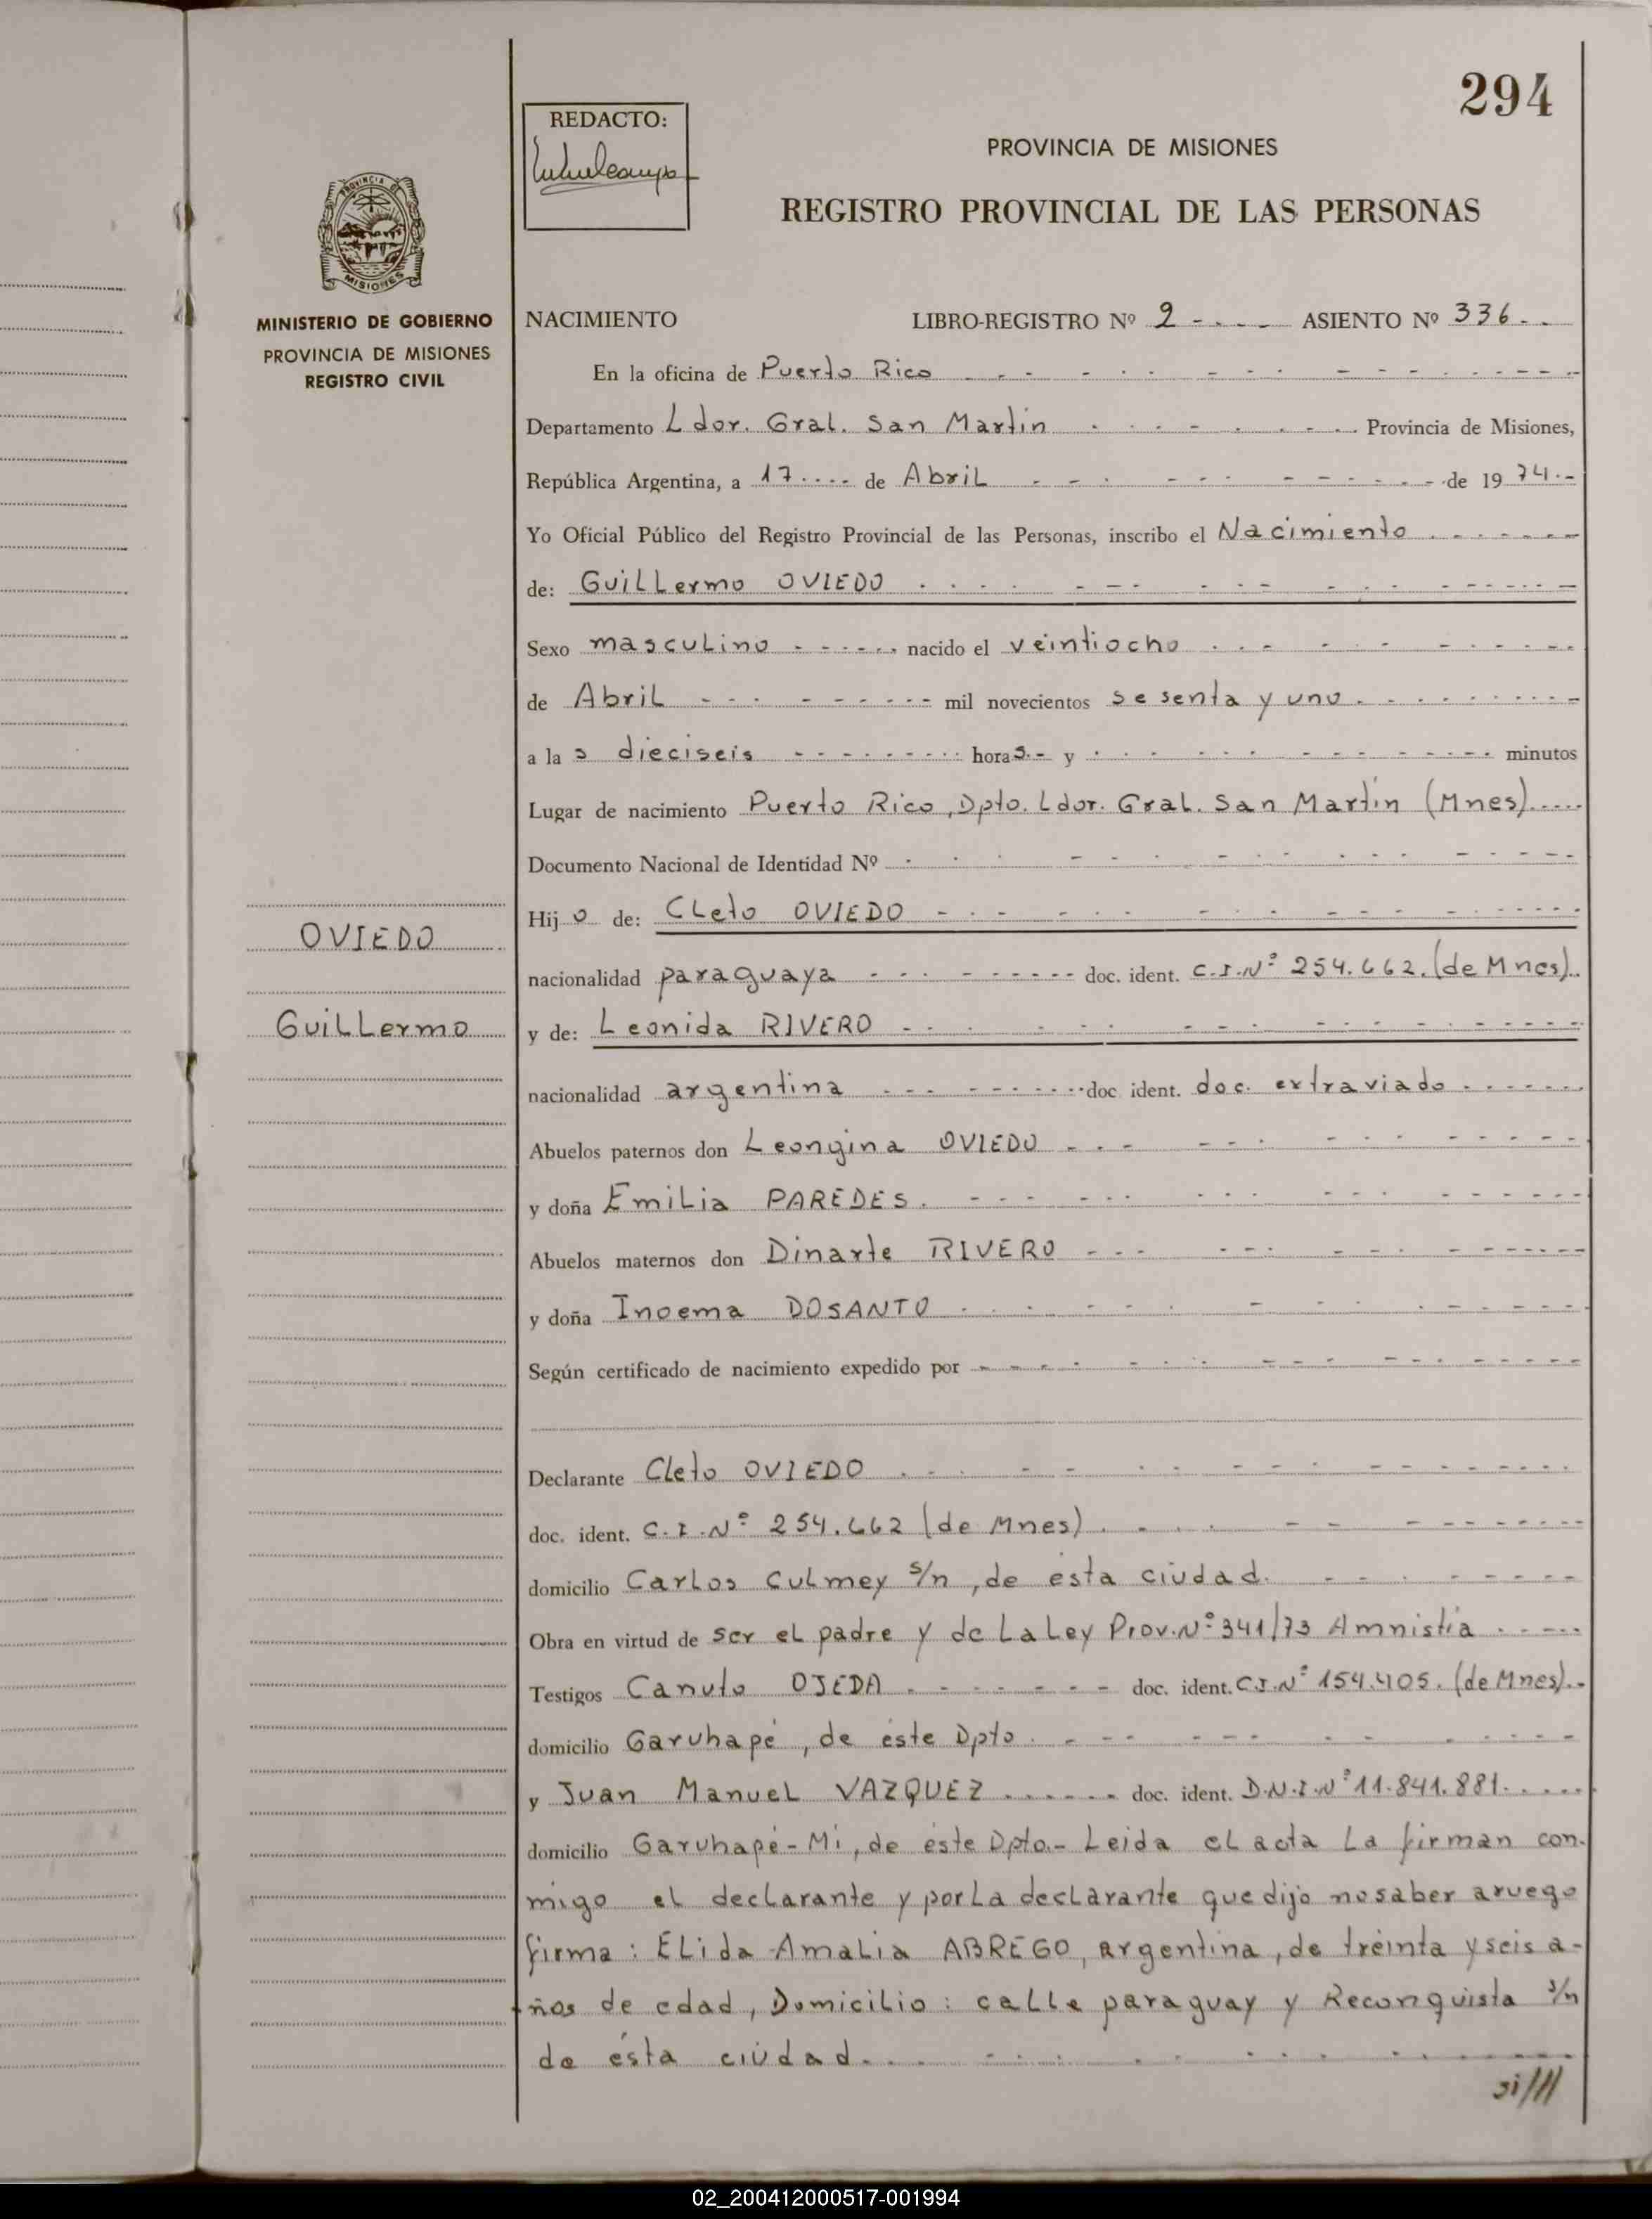 294
REDACTO:
PROVINCIA DE MISIONES
REGISTRO PROVINCIAL DE LAS PERSONAS
PROVINCIA DE
MISIONES
MINISTERIO DE GOBIERNO
PROVINCIA DE MISIONES
REGISTRO CIVIL
NACIMIENTO LIBRO-REGISTRO Nº 2 ASIENTO Nº 336
En la oficina de Puerto Rico
Departamento Ldor. Gral. San Martin Provincia de Misiones,
República Argentina, a 17 de Abril de 1974
Yo Oficial Público del Registro Provincial de las Personas, inscribo el Nacimiento
de: Guillermo OVIEDO
Sexo masculino nacido el veintiocho
de Abril mil novecientos sesenta y uno
a la s dieciseis horas y minutos
Lugar de nacimiento Puerto Rico, Dpto. Ldor. Gral. San Martin (Mnes)
Documento Nacional de Identidad Nº
Hijo de: Cleto OVIEDO
OVIEDO
nacionalidad paraguaya doc. ident. C.I.Nº 254.662. (de Mnes)
Guillermo
y de: Leonida RIVERO
nacionalidad argentina doc ident. doc. extraviado
Abuelos paternos don Leongina OVIEDO
y doña Emilia PAREDES.
Abuelos maternos don Dinarte RIVERO
y doña Inoema DOSANTO
Según certificado de nacimiento expedido por
Declarante Cleto OVIEDO
doc. ident. C.I.Nº 254.662 (de Mnes)
domicilio Carlos Culmey s/n, de esta ciudad.
Obra en virtud de ser el padre y de La Ley Prov. Nº 341/73 Amnistía
Testigos Canuto OJEDA doc. ident. C.I.Nº 154.405. (de Mnes)
domicilio Garuhapé, de éste Dpto
y Juan Manuel VAZQUEZ doc. ident. D.N.I.Nº 11.841.881
domicilio Garuhapé-Mí, de éste Dpto.- Leida el acta la firman con-
migo el declarante y por la declarante que dijo no saber a ruego
firma: Elida Amalia ABREGO, argentina, de treinta y seis a-
ños de edad, Domicilio: calle paraguay y Reconquista s/n
de ésta ciudad.
si///
02_200412000517-001994